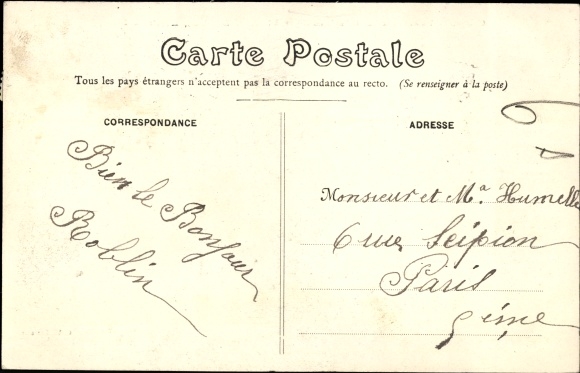 Carte Postale
Tous les pays étrangers n'acceptent pas la correspondance au recto. (Se renseigner à la poste)
CORRESPONDANCE
Bien le Bonjour
Roblin
ADRESSE
Monsieur et Mª. Humelle
6 rue Scipion
Paris
5ème